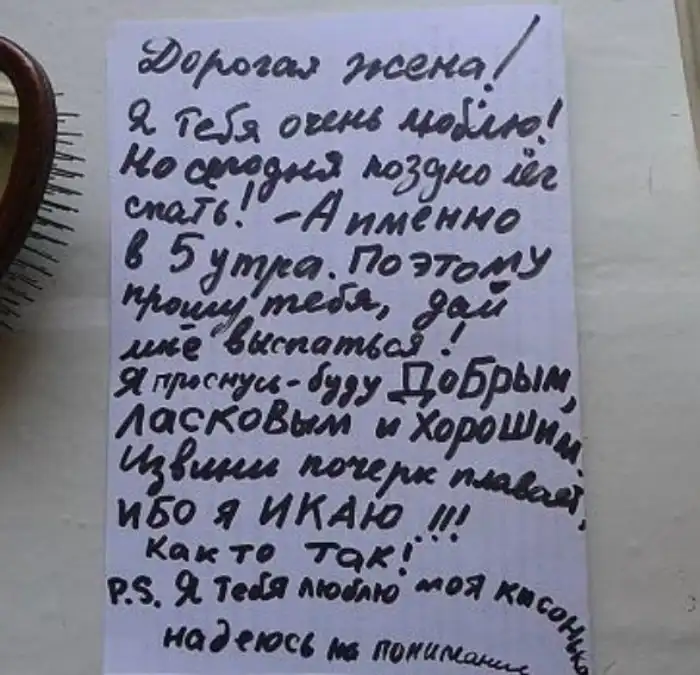 Дорогая жена!
Я тебя очень люблю!
Но сегодня поздно лёг
спать! - А именно
в 5 утра. Поэтому
прошу тебя, дай
мне выспаться!
Я проснусь - буду ДОБРЫМ,
ЛАСКОВЫМ и ХОРОШИМ.
Извини почерк плавает,
ИБО Я ИКАЮ !!!
Как то так!
P.S. Я тебя люблю моя кисонька
надеюсь на понимание